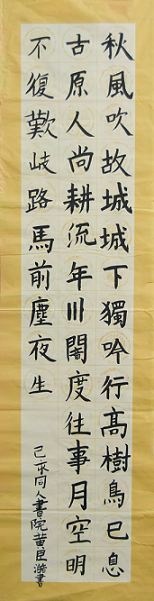 秋風吹故城城下獨吟行高樹鳥已息
古原人尚耕流年川闇度往事月空明
不復歎岐路馬前塵夜生
己亥同人書院黃臣書